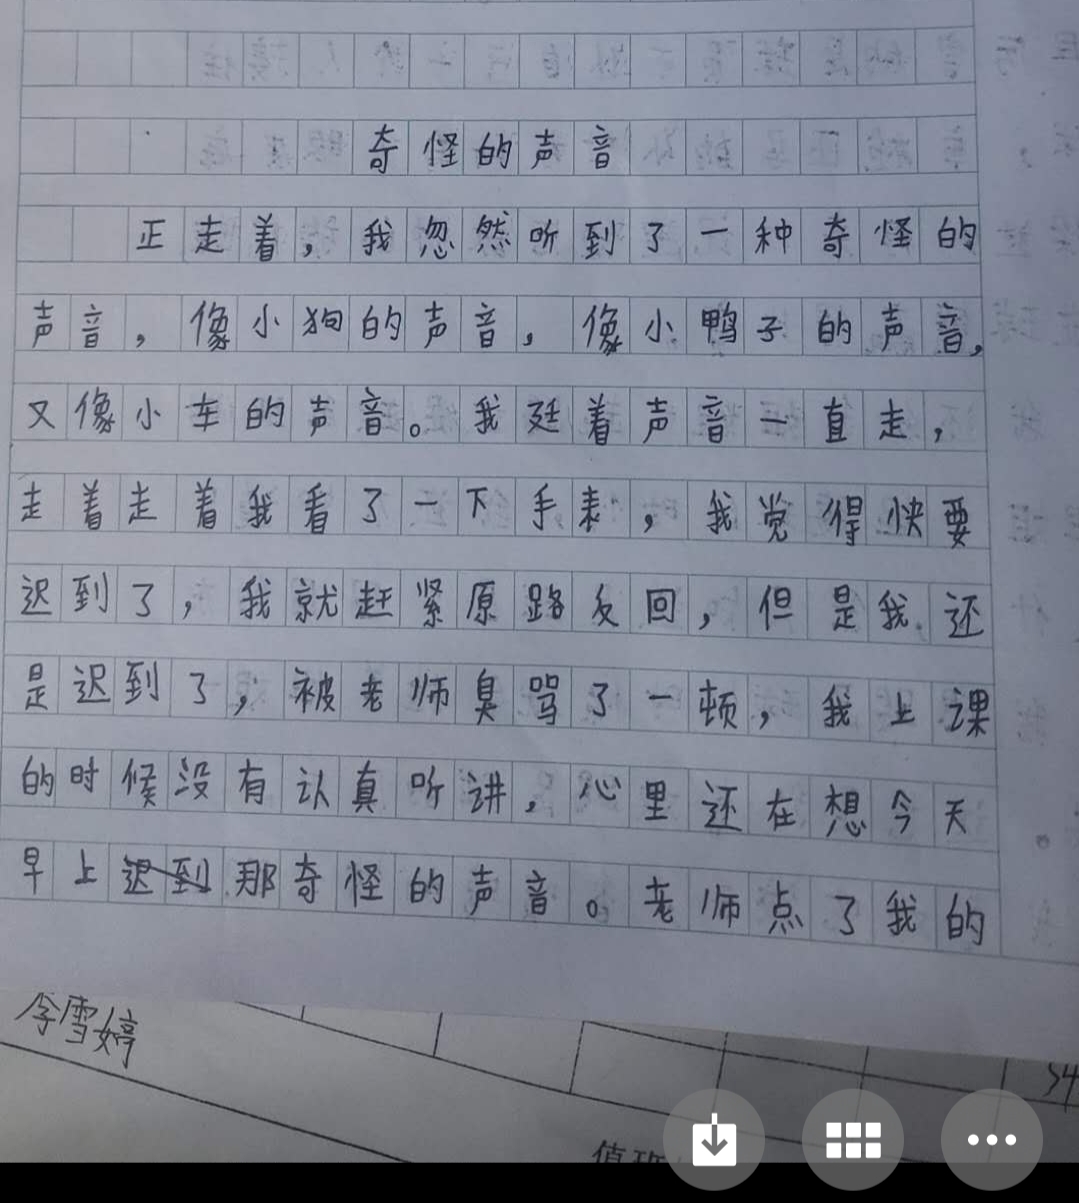 奇怪的声音
正走着，我忽然听到了一种奇怪的
声音，像小狗的声音，像小鸭子的声音，
又像小车的声音。我廷着声音一直走，
走着走着我看了一下手表，我觉得快要
迟到了，我就赶紧原路反回，但是我还
是迟到了，被老师臭骂了一顿，我上课
的时候没有认真听讲，心里还在想今天
早上迟到那奇怪的声音。老师点了我的
李雪婷